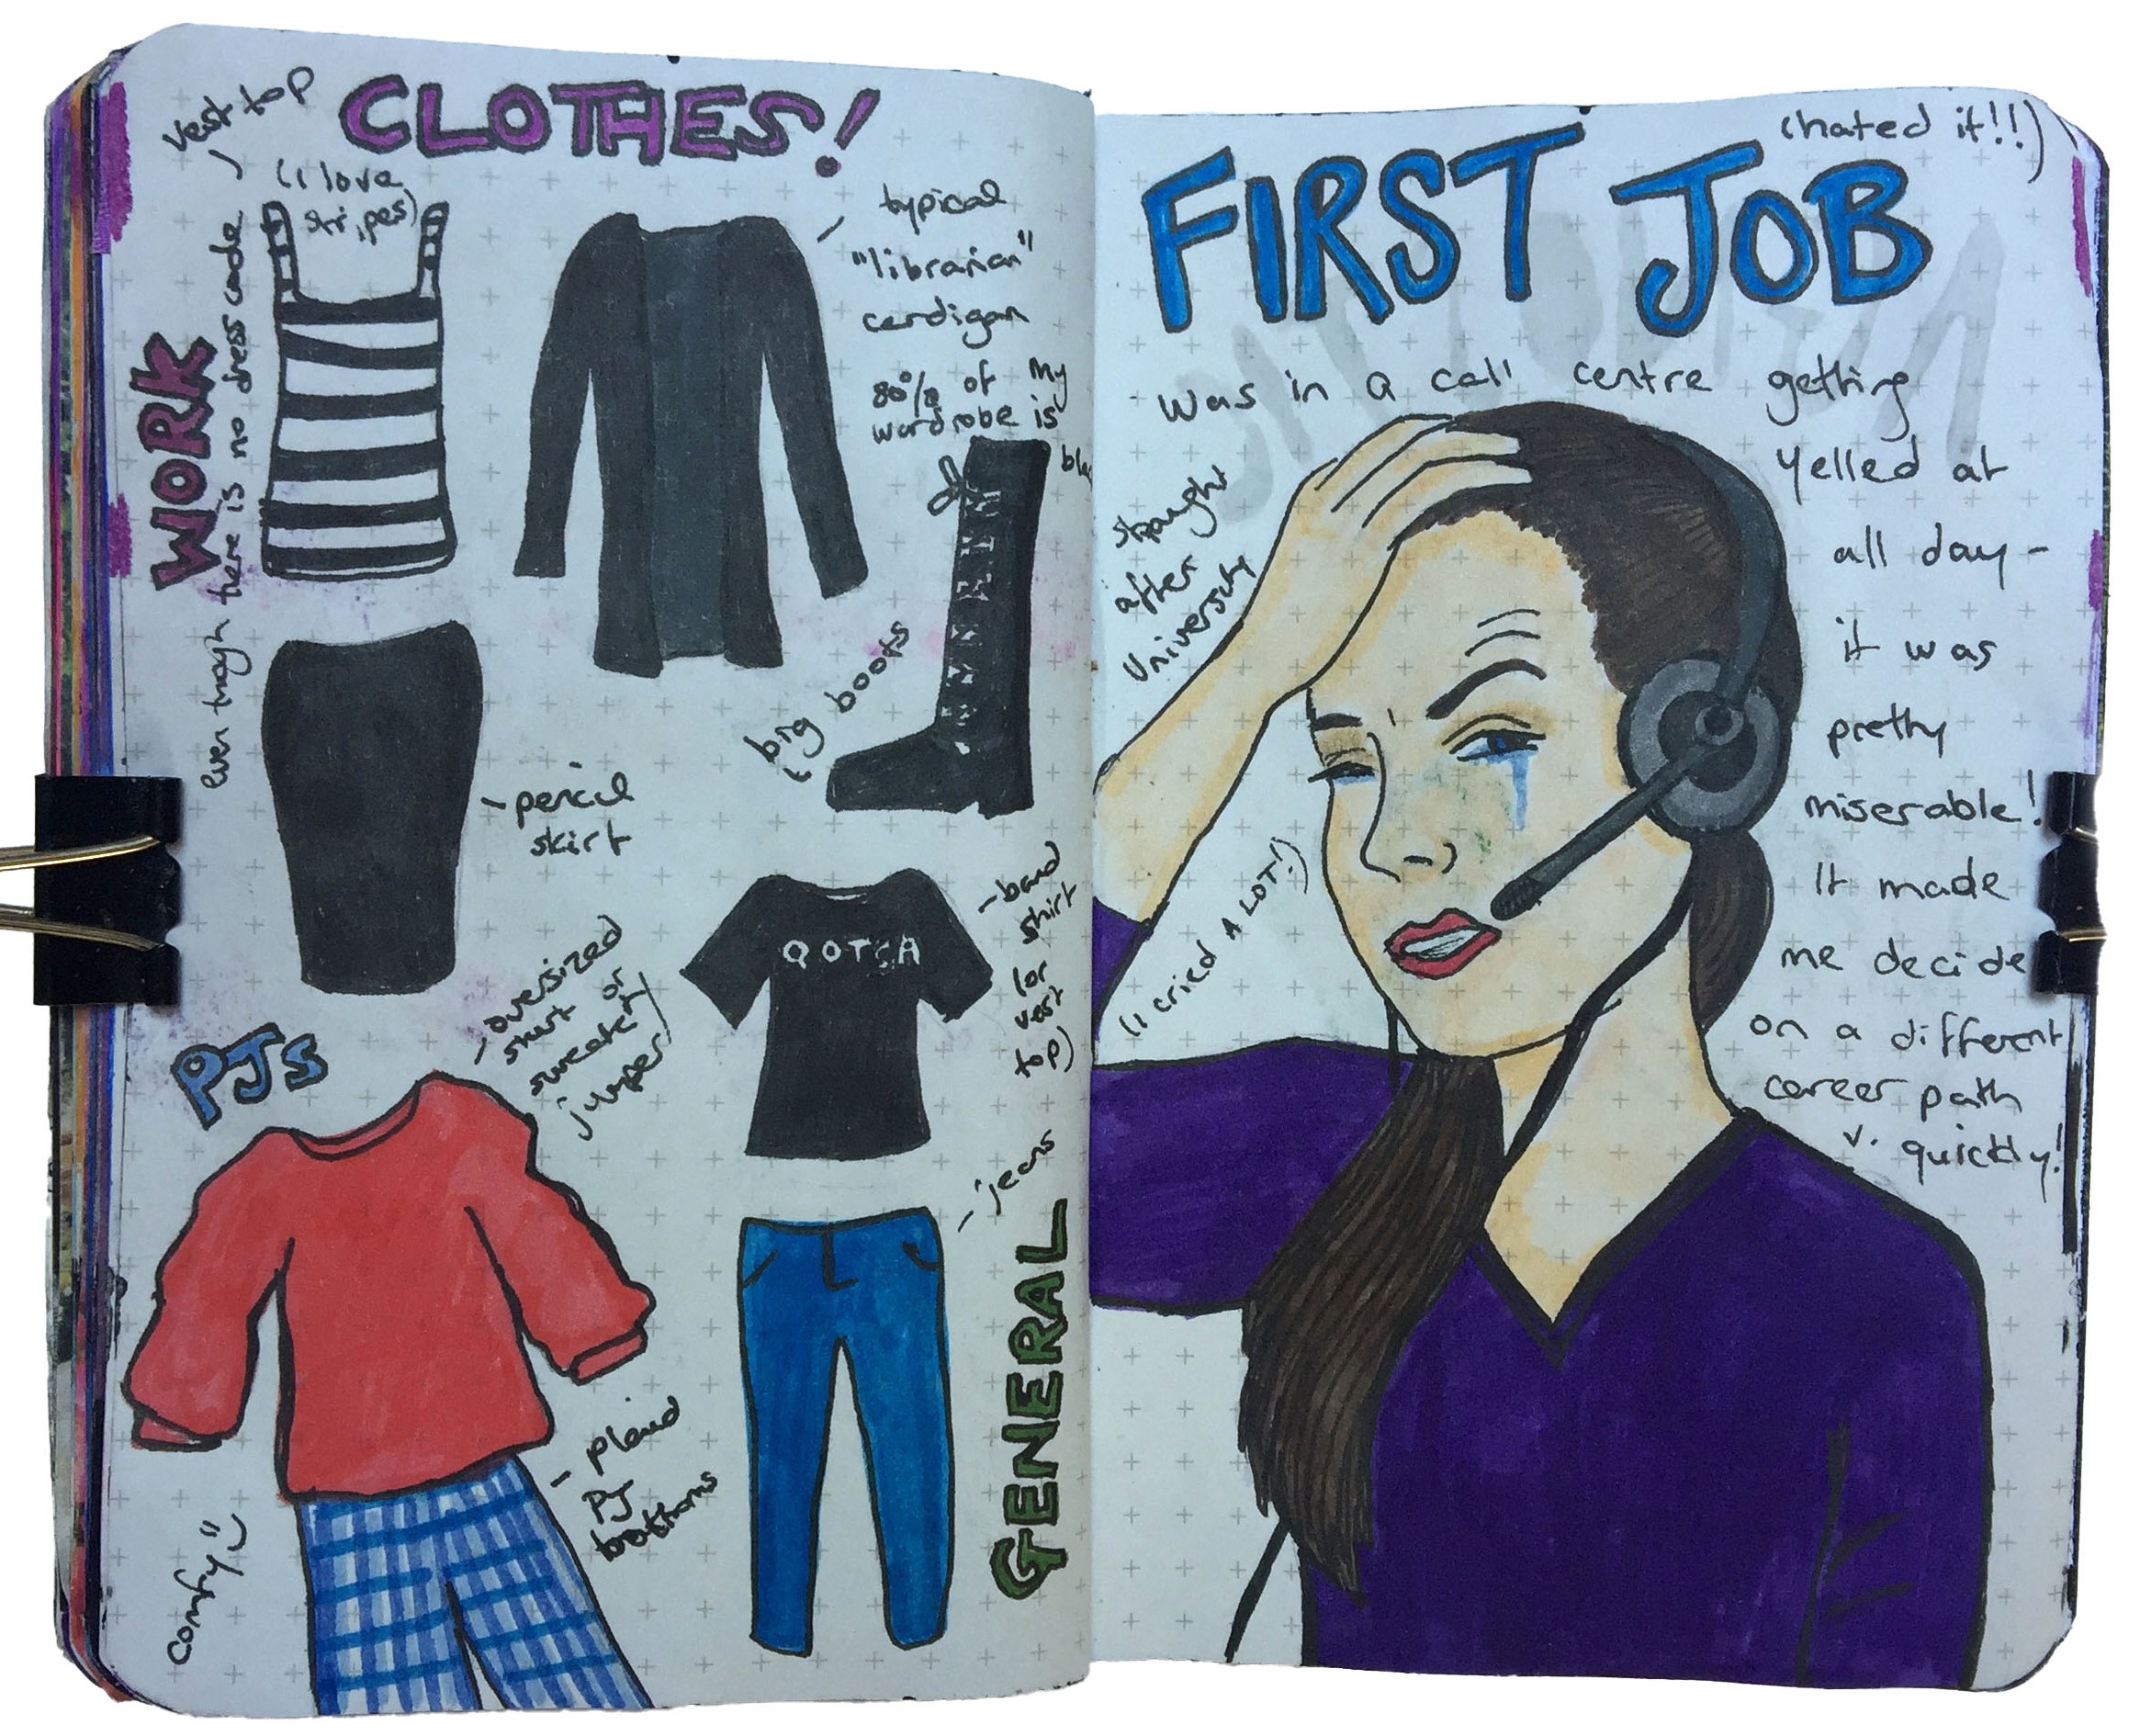 CLOTHES!
vest top
(I love
stripes)
WORK
even though there is no dress code
typical
"librarian"
cardigan
80% of my
wardrobe is
big boots
- pencil
skirt
QOTSA
- band
shirt
(or
vest
top)
PJs
- oversized
shirt or
sweater/
jumper
- plaid
PJ
bottoms
comfy
- jeans
GENERAL
(hated it!!)
FIRST JOB
was in a call centre getting
yelled at
all day -
it was
pretty
miserable!
It made
me decide
on a different
career path
v. quickly!
straight
after
University
(I cried A LOT!)